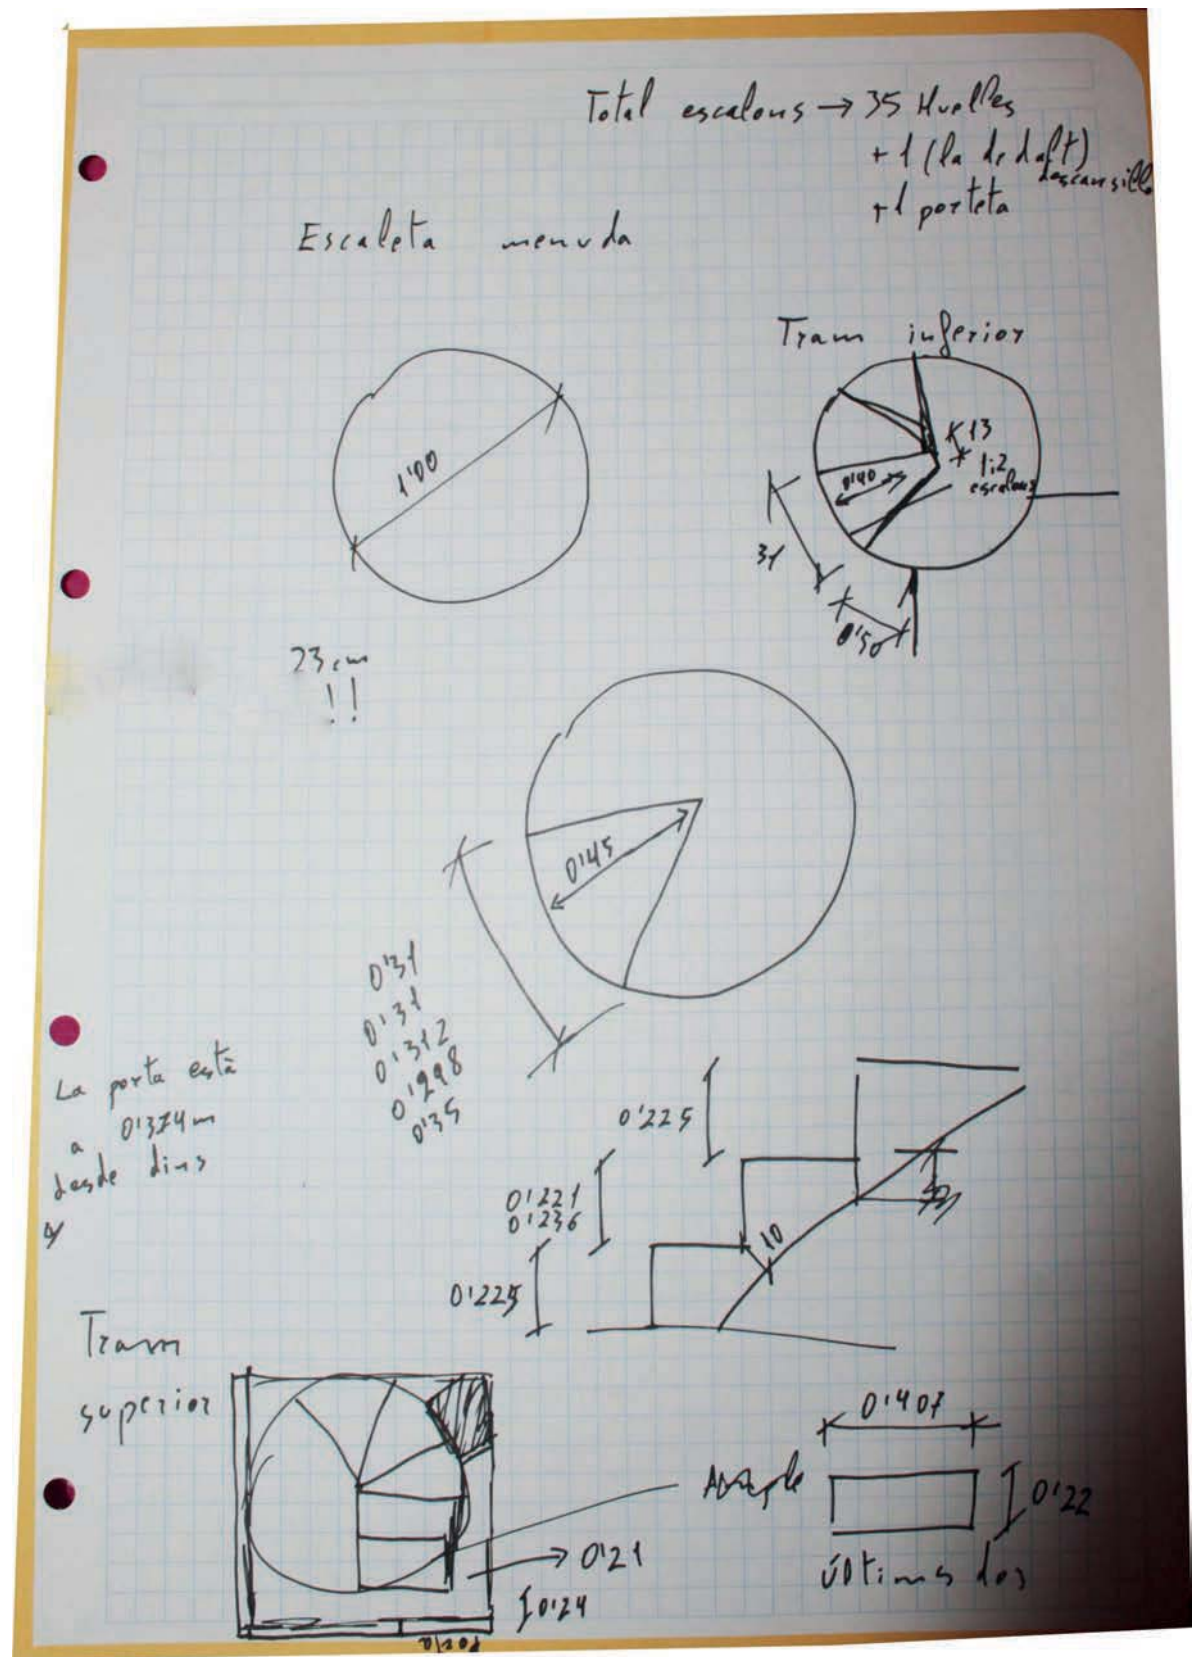 Total escalons → 35 Huelles
+ 1 (la de dalt)
descansillo
+1 porteta
Escaleta menuda
Tram inferior
1'00
13
1i2
escalons
0'40
31
0'50
23 cm
!!
0'45
0'31
0'31
0'312
0'298
0'35
La porta està
a 0'374m
desde dins
0'225
0'221
0'236
10
0'225
Tram
superior
0'407
0'22
últims dos
0'21
0'24
Porta